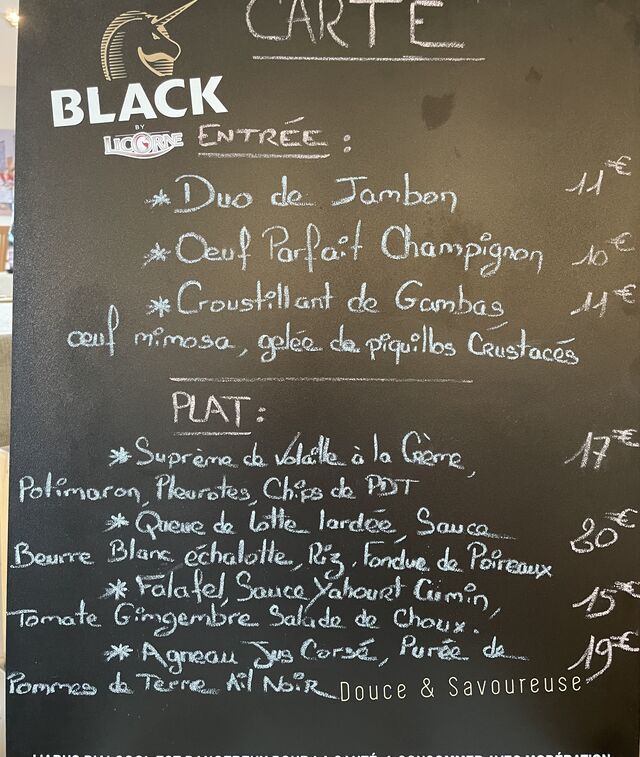 CARTE
BLACK
BY
LICORNE
ENTRÉE :
* Duo de Jambon 11€
* Oeuf Parfait Champignon 10€
* Croustillant de Gambas 11€
œuf mimosa, gelée de piquillos Crustacés
PLAT :
* Suprème de volaille à la Crème, 17€
Potimaron, Pleurotes, Chips de PDT
* Queue de lotte lardée, Sauce 20€
Beurre Blanc échalotte, Riz, Fondue de Poireaux
* Falafel, Sauce Yahourt Cumin, 15€
Tomate Gingembre Salade de Choux.
* Agneau Jus Corsé, Purée de 19€
Pommes de Terre Ail Noir
Douce & Savoureuse